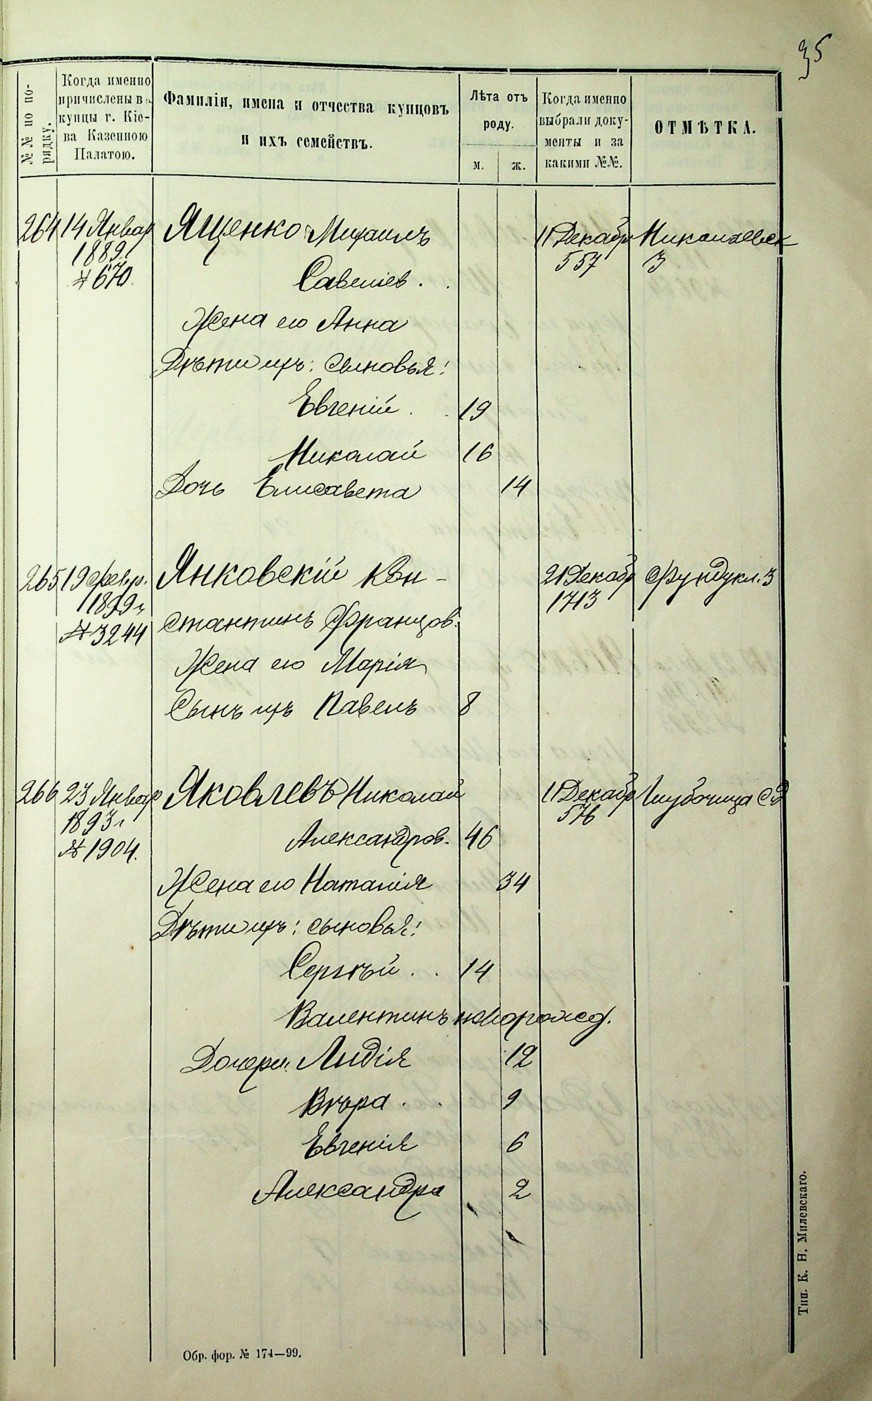 35
№№ по по-
рядку.
Когда именно
причислены в
купцы г. Кіе-
ва Казенною
Палатою.
Фамиліи, имена и отчества купцовъ
и ихъ семействъ.
Лѣта отъ
роду.
м. ж.
Когда именно
выбрали доку-
менты и за
какими №№.
ОТМѢТКА.
264 14 Январ Ященко Михаилъ 11 Декабр Николаевск
1889 г Савеліев. 557 3
№ 670.
Жена его Анна
Дѣти ихъ: сыновья:
Евгеній. 19
Николай 16
Дочь Елисавета 14
265 19 февр. Янковскій Кон- 21 Декабр Фундукл. 3
1899 г 1713
№ 3244 стантинъ Францов.
Жена его Марія
Сынъ ихъ Павелъ 8
266 23 Январ Яковлевъ Николай 11 Декабр Глубочица СД
1893 г 576
№ 1904. Александров. 46
Жена его Наталія 34
Дѣти ихъ: сыновья:
Сергѣй . . 14
Валентинъ новорожд.
Дочери: Лидія 12
Вѣра . . 9
Евгенія 6
Александра 2
Обр. фор. № 174—99.
Тип. К. Н. Милевскаго.